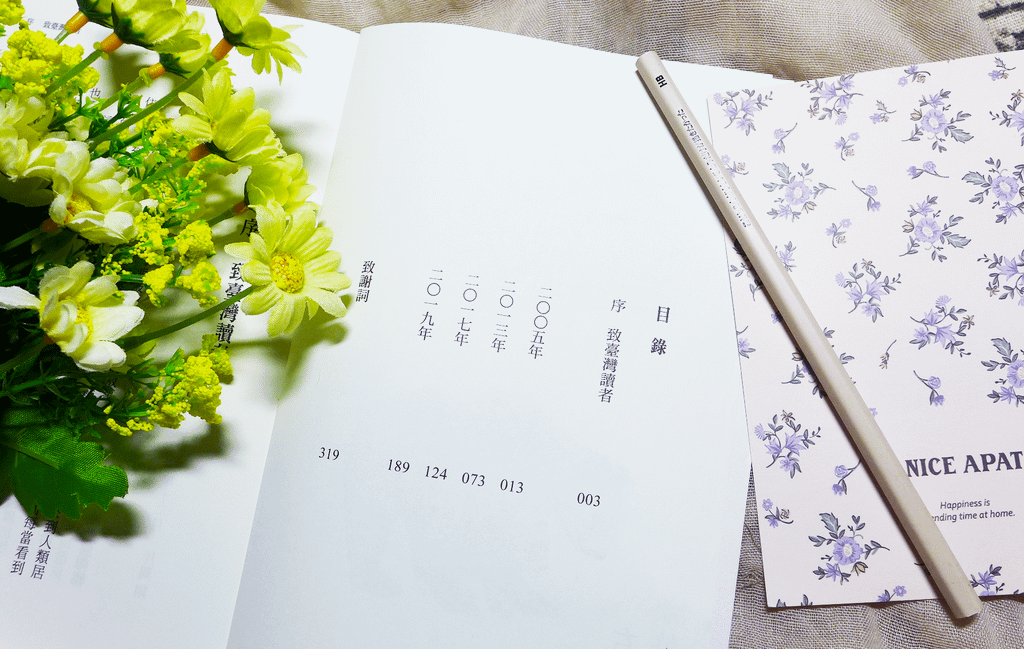 目錄
序 致臺灣讀者 003
二〇〇五年 013
二〇一三年 073
二〇一七年 124
二〇一九年 189
致謝詞 319
序
致臺灣讀
人類居
每當看到
HB
NICE APAT
Happiness is
ending time at home.